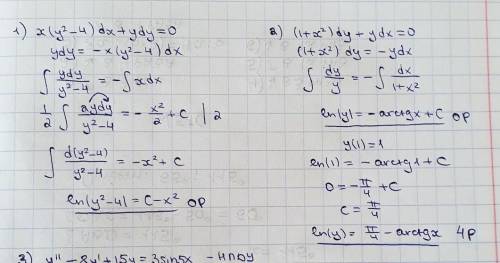 1) x(y²-4)dx+ydy=0
ydy = -x(y²-4)dx
∫ ydy/(y²-4) = -∫xdx
1/2 ∫ 2ydy/(y²-4) = -x²/2 + C | 2
∫ d(y²-4)/(y²-4) = -x² + C
ln(y²-4) = C-x² ОР
2) (1+x²)dy+ydx=0
(1+x²)dy = -ydx
∫ dy/y = -∫ dx/(1+x²)
ln(y) = -arctgx+C ОР
y(1)=1
ln(1) = -arctg1+C
0 = -π/4 + C
C = π/4
ln(y) = π/4 - arctgx ЧР
3) y'' - 8y' + 15y = 3sin5x - ЛНДУ